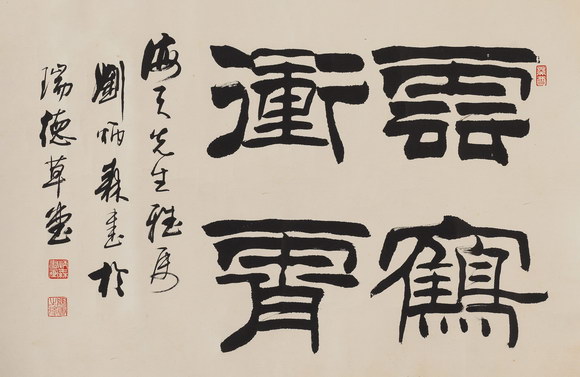 雲鶴
衝霄
海天先生雅属
劉炳森書於
瑞德草堂